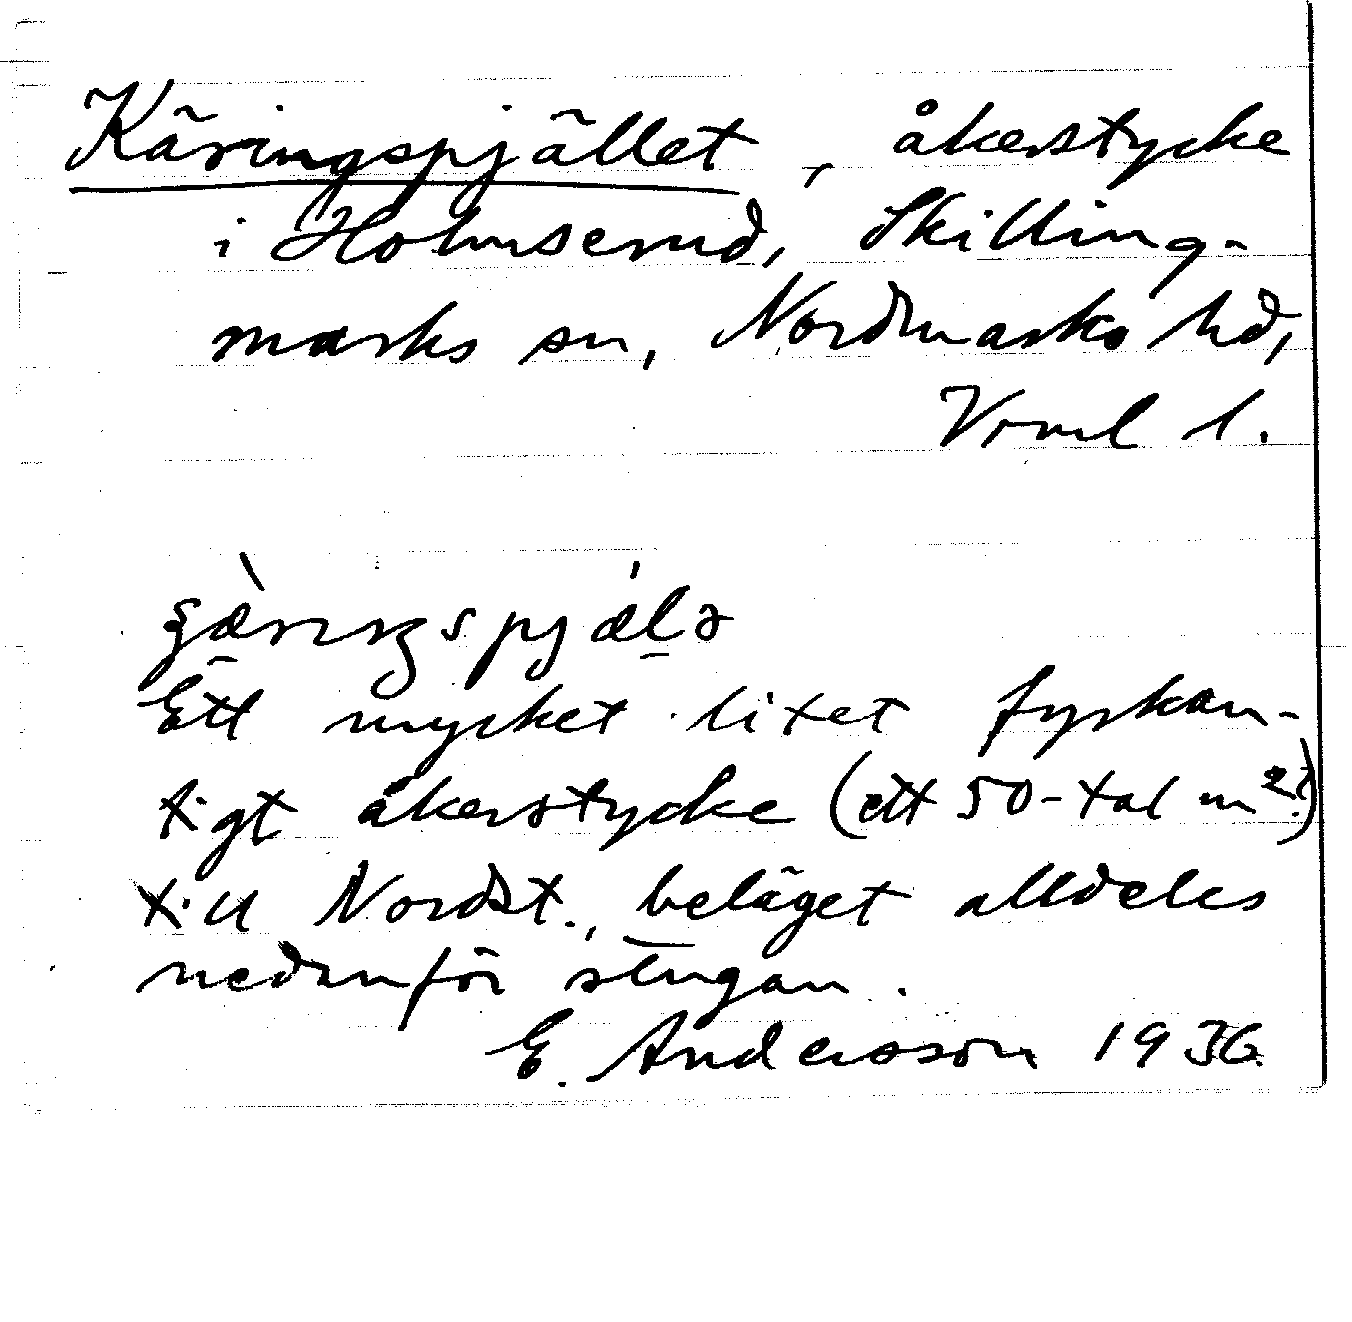 Käringspjället, åkerstycke
i Holmserud, Skilling-
marks sn, Nordmarks hd,
Vrml l.
Ett mycket litet fyrkan-
tigt åkerstycke (ett 50-tal m²?)
till Nordst., beläget alldeles
nedanför stugan.
E. Andersson 1936.